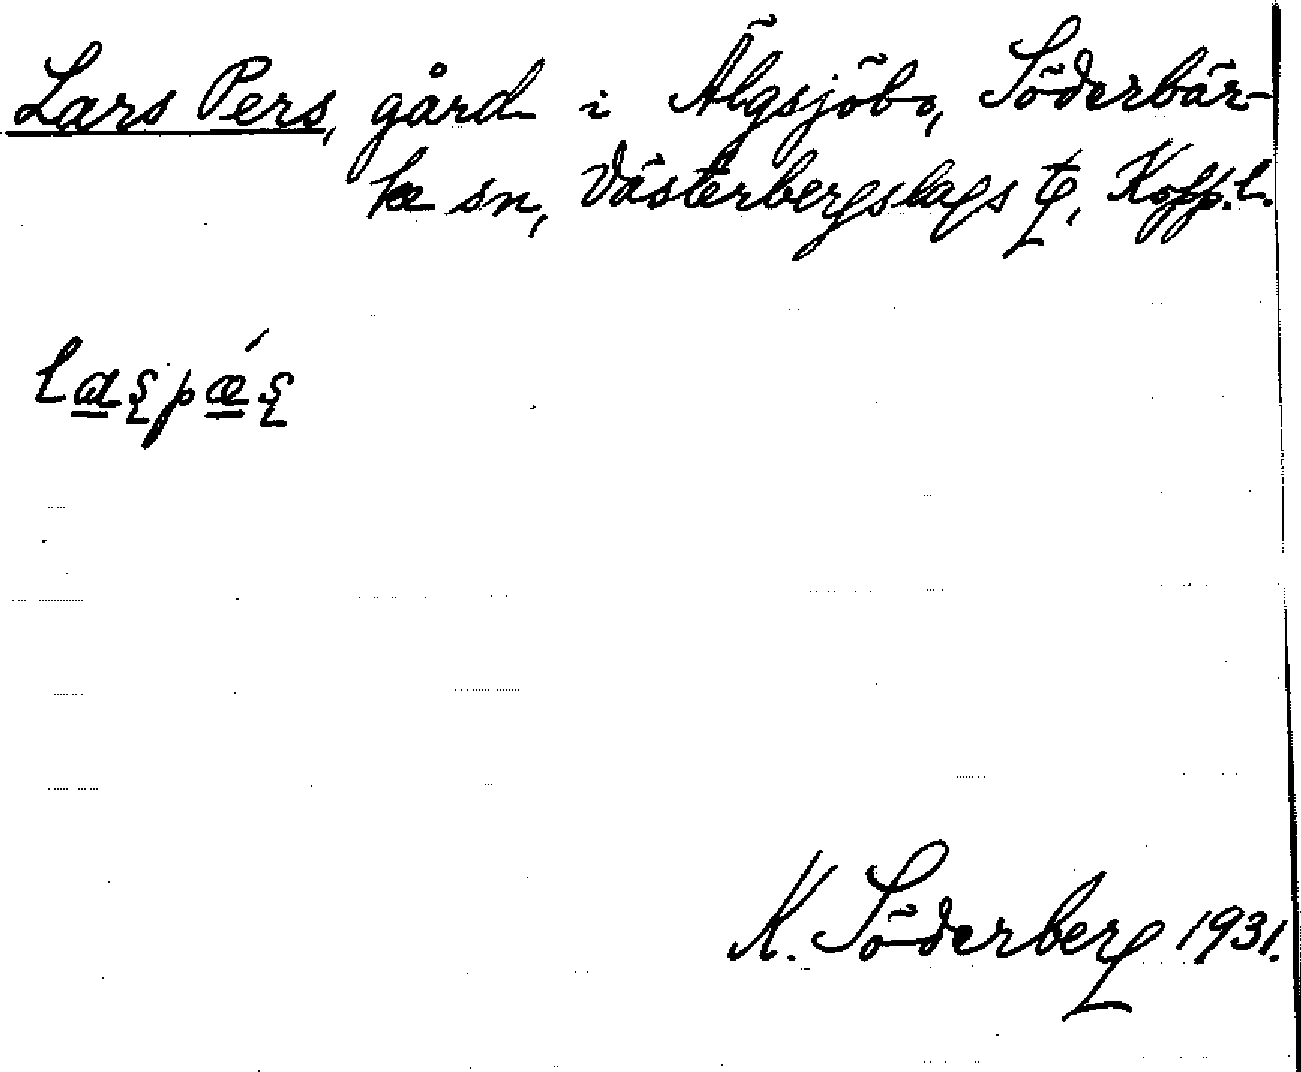 Lars Pers, gård i Älgsjöbo, Söderbär-
ke sn, Västerbergslags tg, Kopp.l.
laspǽs
K. Söderberg 1931.